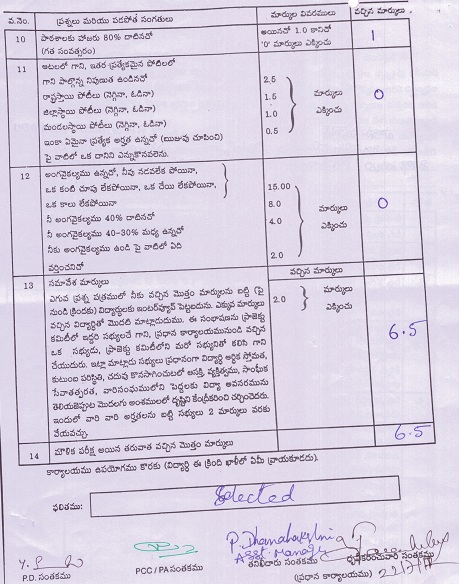 వ.నెం. ప్రశ్నలు మరియు పడవోత సంగతులు మార్కుల వివరములు వచ్చిన మార్కులు
10 పాఠశాలకు హాజరు 80% దాటినచో అయినచో 1.0 కానిచో 1
(గత సంవత్సరం) '0' మార్కులు ఎక్కించు
11 ఆటలలో గాని, ఇతర ప్రత్యేకమైన పోటీలలో
గాని పాల్గొన్న నిపుణత ఉండినచో 2.5
రాష్ట్రస్థాయి పోటీలు (నెగ్గినా, ఓడినా) 1.5 మార్కులు 0
జిల్లాస్థాయి పోటీలు (నెగ్గినా, ఓడినా) 1.0 ఎక్కించు
మండలస్థాయి పోటీలు (నెగ్గినా, ఓడినా) 0.5
ఇంకా ఏమైనా ప్రత్యేక అర్హత ఉన్నచో (ఋజువు చూపించి)
పై వాటిలో ఒక దానిని ఎన్నుకొనవలెను.
12 అంగవైకల్యము ఉన్నచో, నీవు నడవలేక పోయినా,
ఒక కంటి చూపు లేకపోయినా, ఒక చేయి లేకపోయినా, 15.00
ఒక కాలు లేకపోయినా 8.0 మార్కులు 0
నీ అంగవైకల్యము 40% దాటినచో 4.0 ఎక్కించు
నీ అంగవైకల్యము 40-30% మధ్య ఉన్నచో
నీకు అంగవైకల్యము ఉండి పై వాటిలో ఏది 2.0
వర్తించనిచో
13 సమావేశ మార్కులు వచ్చిన మార్కులు
ఎగువ ప్రశ్న పత్రములో నీకు వచ్చిన మొత్తం మార్కులను బట్టి (పై 2.0 మార్కులు
నుండి క్రిందకు) విద్యార్థులకు ఇంటర్వ్యూవ్ పెట్టబడును. ఎక్కువ మార్కులు ఎక్కించు
వచ్చిన విద్యార్థితో మొదటి మాట్లాడుదుము. ఈ సంభాషణను ప్రాజెక్టు 6.5
కమిటీలో ఇద్దరి సభ్యులచే గాని, ప్రధాన కార్యాలయమునుండి వచ్చిన
ఒక సభ్యుడు, ప్రాజెక్టు కమిటీలోని మరో సభ్యునితో కలిసి గాని
చేయుదురు. ఇట్లా మాట్లాడు సభ్యులు ప్రధానంగా విద్యార్థి ఆర్థిక స్తోమత,
కుటుంబ పరిస్థితి, చదువు కొనసాగించుటలో ఆసక్తి, వ్యక్తిత్వము, సాంఘిక
సేవాతత్పరత, వారిసంఘములోని పెద్దలకు విద్యా అవసరమును
తెలియజెప్పుట మొదలగు అంశములలో దృష్టిని కేంద్రీకరించి చర్చించెదరు.
ఇందులో వారి వారి అర్హతలను బట్టి సభ్యులు 2 మార్కులు వరకు
వేయవచ్చు.
14 మౌఖిక పరీక్ష అయిన తరువాత వచ్చిన మొత్తం మార్కులు 6.5
కార్యాలయము ఉపయోగము కొరకు (విద్యార్థి ఈ క్రింది ఖాళీలో ఏమీ వ్రాయకూడదు).
ఫలితము: Selected
P. Dhanalakshmi
Asst. Manager
P.D. సంతకము PCC / PA సంతకము తనిఖీదారు సంతకము ధృవీకరించువారి సంతకము
(ప్రధాన కార్యాలయము)